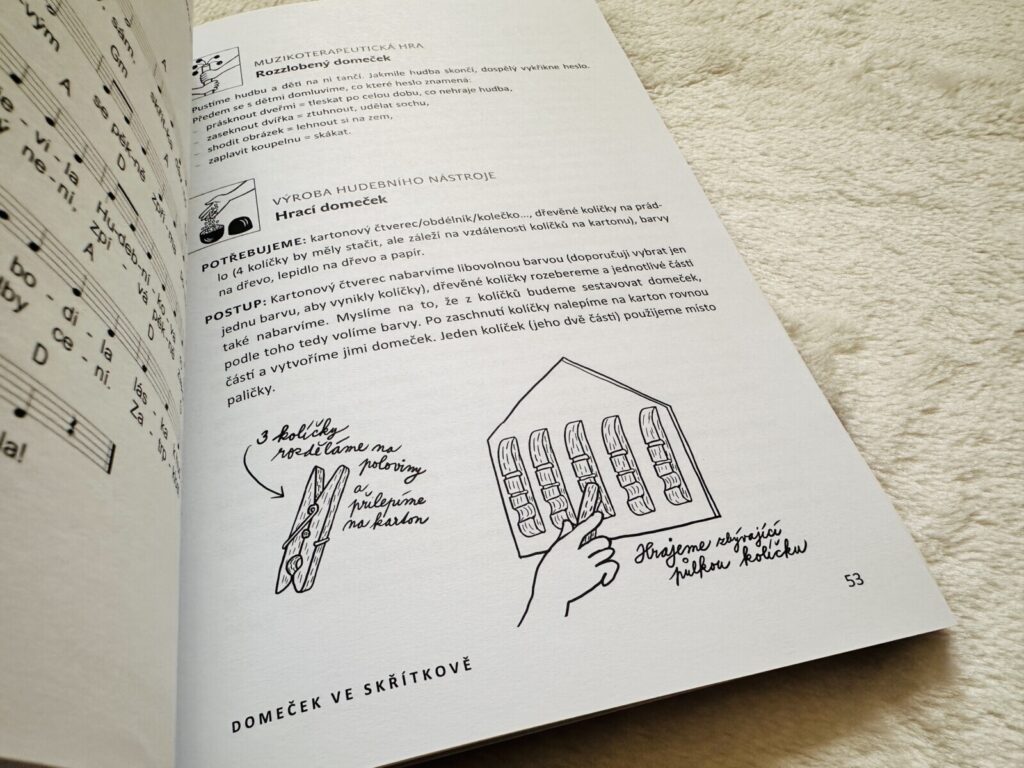 vým
sám.
Gm
A
A
se pěk-ně
D
A
vi - la
ne - ní,
Hu-deb-ní
zpí - vá
A
D
bo - di - la
ce - ní.
D
lás - ka
Za
la!
MUZIKOTERAPEUTICKÁ HRA
Rozzlobený domeček
Pustíme hudbu a děti na ni tančí. Jakmile hudba skončí, dospělý vykřikne heslo.
Předem se s dětmi domluvíme, co které heslo znamená:
– prásknout dveřmi = tleskat po celou dobu, co nehraje hudba,
– zaseknout dvířka = ztuhnout, udělat sochu,
– shodit obrázek = lehnout si na zem,
– zaplavit koupelnu = skákat.
VÝROBA HUDEBNÍHO NÁSTROJE
Hrací domeček
POTŘEBUJEME: kartonový čtverec/obdélník/kolečko..., dřevěné kolíčky na prád-
lo (4 kolíčky by měly stačit, ale záleží na vzdálenosti kolíčků na kartonu), barvy
na dřevo, lepidlo na dřevo a papír.
POSTUP: Kartonový čtverec nabarvíme libovolnou barvou (doporučuji vybrat jen
jednu barvu, aby vynikly kolíčky), dřevěné kolíčky rozebereme a jednotlivé části
také nabarvíme. Myslíme na to, že z kolíčků budeme sestavovat domeček,
podle toho tedy volíme barvy. Po zaschnutí kolíčky nalepíme na karton rovnou
částí a vytvoříme jimi domeček. Jeden kolíček (jeho dvě části) použijeme místo
paličky.
3 kolíčky
rozděláme na
poloviny
a
přilepíme
na karton
Hrajeme zbývající
půlkou kolíčku
53
DOMEČEK VE SKŘÍTKOVĚ